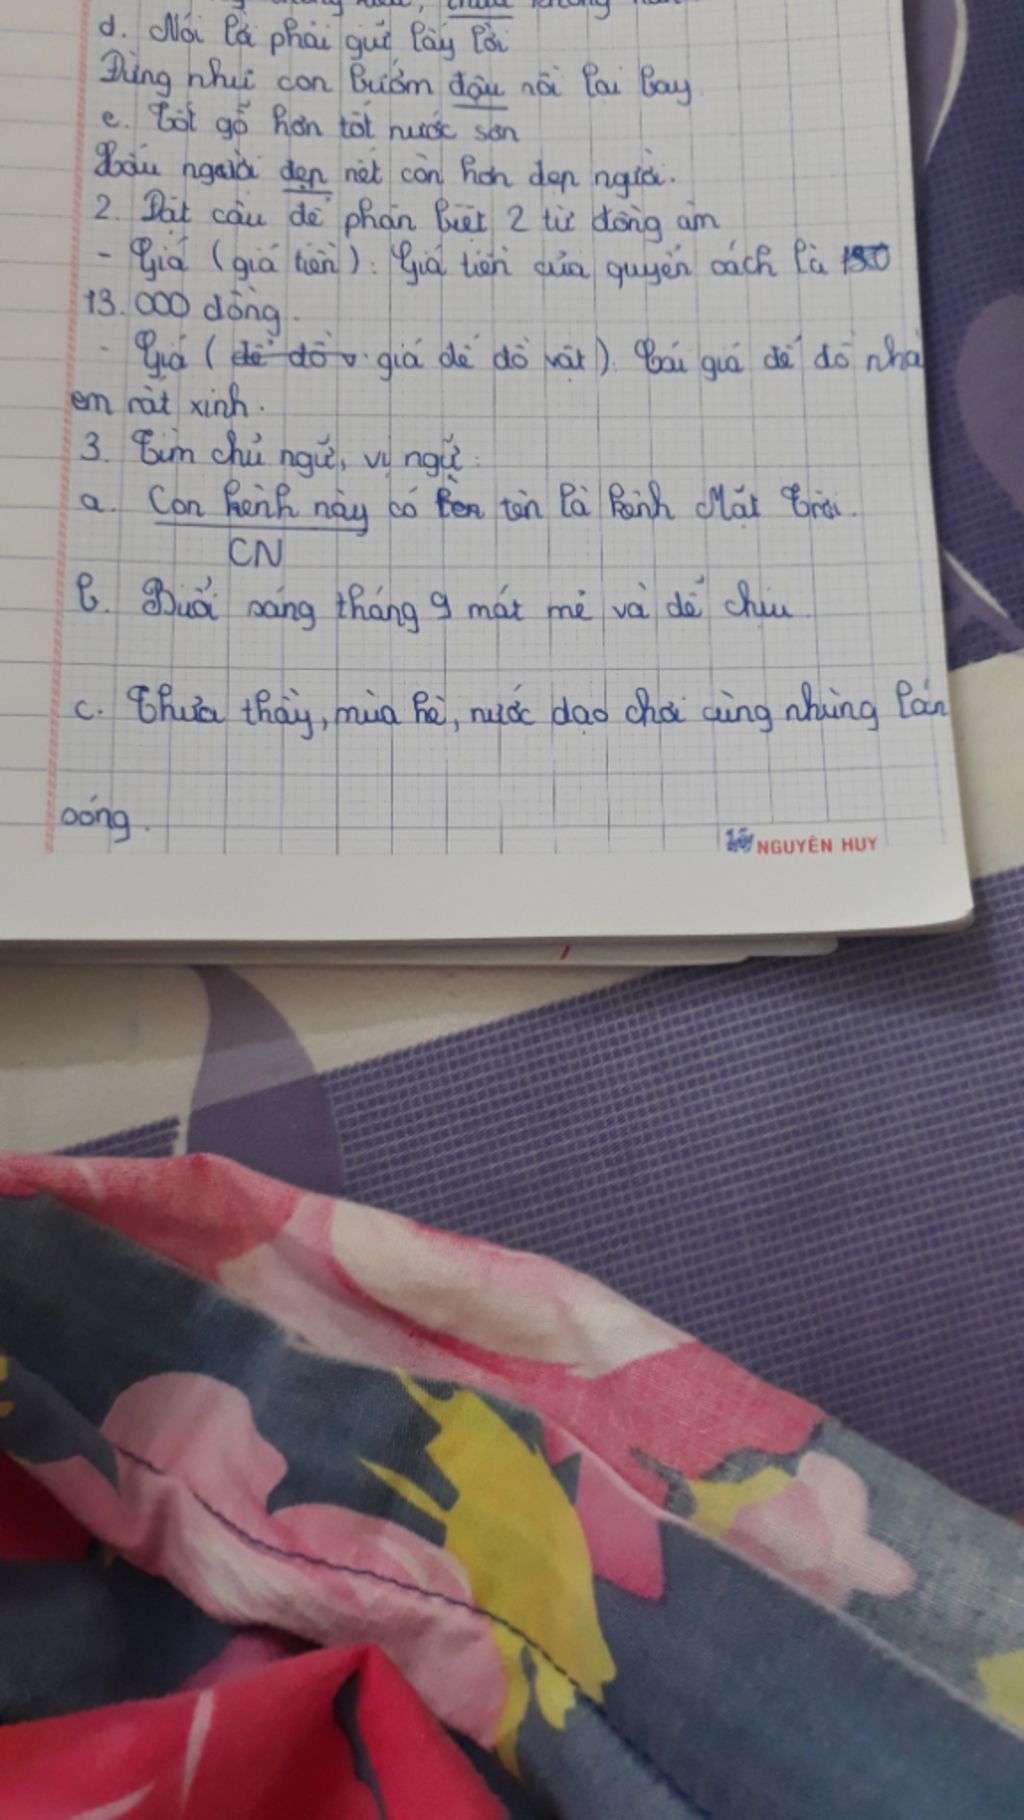 d. Nói là phải giữ lấy lời
Đừng như con bướm đậu rồi lại bay
e. Tốt gỗ hơn tốt nước sơn
Xấu người đẹp nết còn hơn đẹp người.
2. Đặt câu để phân biệt 2 từ đồng âm
- Giá (giá tiền): Giá tiền của quyển sách là
13.000 đồng.
- Giá (để đồ v giá để đồ vật). Cái giá để đồ nhà
em rất xinh.
3. Tìm chủ ngữ, vị ngữ:
a. Con kênh này có tên tên là kênh Mặt Trời.
CN
b. Buổi sáng tháng 9 mát mẻ và dễ chịu.
c. Thưa thầy, mùa hè, nước dạo chơi cùng những làn
sóng.
NGUYÊN HUY